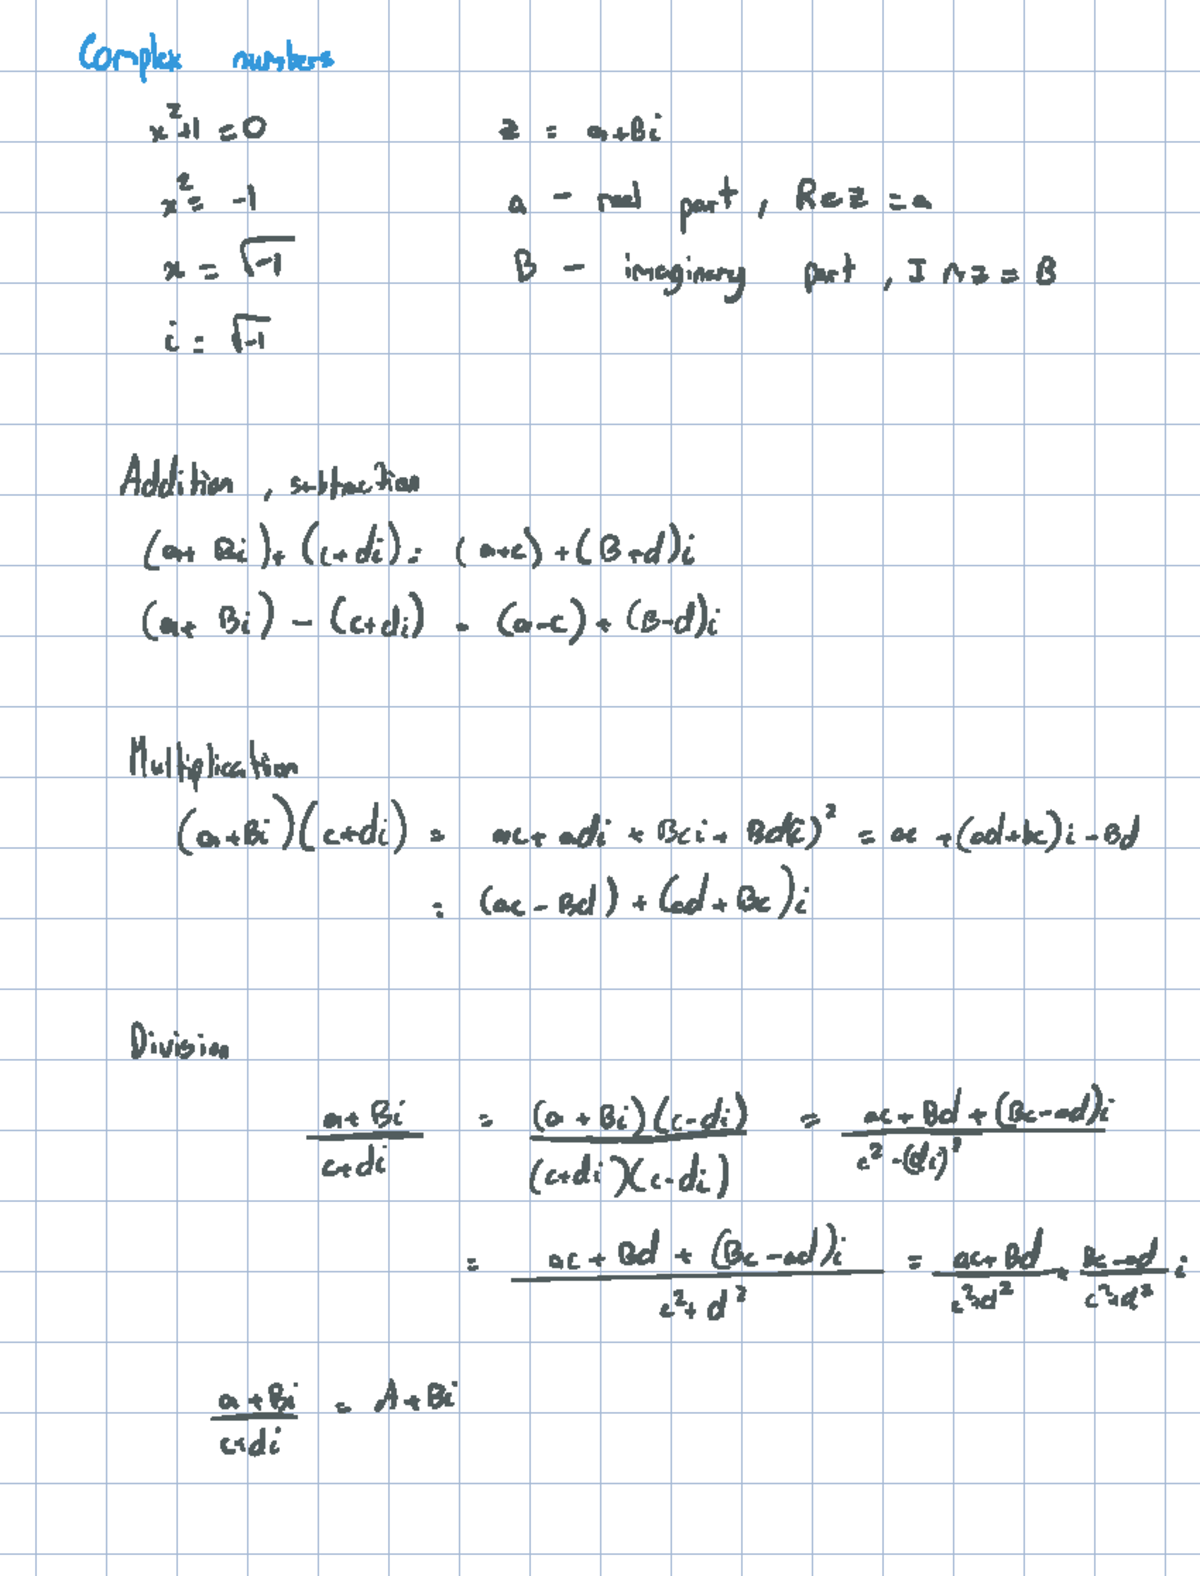 Complex numbers
x²+1 = 0
x² = -1
x = √-1
i = √-1
z = a+Bi
a – real part, Re z = a
B – imaginary part, Im z = B
Addition, subtraction
(a+ Bi)+ (c+di) = (a+c) + (B+d)i
(a+ Bi) – (c+di) = (a-c) + (B-d)i
Multiplication
(a+Bi)(c+di) = ac+ adi + Bci + Bd(i)² = ac +(ad+bc)i - Bd
= (ac - Bd) + (ad + Bc)i
Division
(a+ Bi)/(c+di) = (a + Bi)(c-di)/(c+di)(c-di) = (ac + Bd + (Bc-ad)i)/(c² -(di)²)
= (ac + Bd + (Bc -ad)i)/(c²+ d²) = (ac+Bd)/(c²+d²) + (Bc-ad)/(c²+d²) i
(a+Bi)/(c+di) = A+Bi